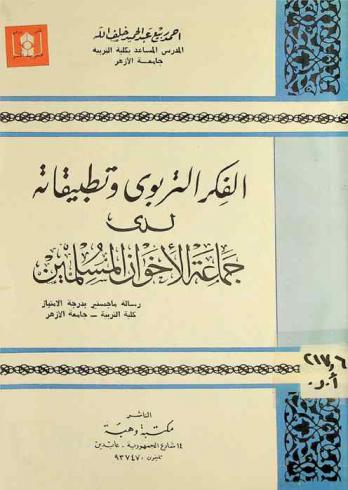 احمد ربيع عبد الحميد خلف الله
المدرس المساعد بكلية التربية
جامعة الأزهر
الفكر التربوى وتطبيقاته
لدى
جماعة الأخوان المسلمين
رسالة ماجستير بدرجة الامتياز
كلية التربية – جامعة الأزهر
٢١٧٫٦
أ.ر.
الناشر
مكتبة وهبة
١٤ شارع الجمهورية - عابدين
تليفون ٩٣٧٤٧٠